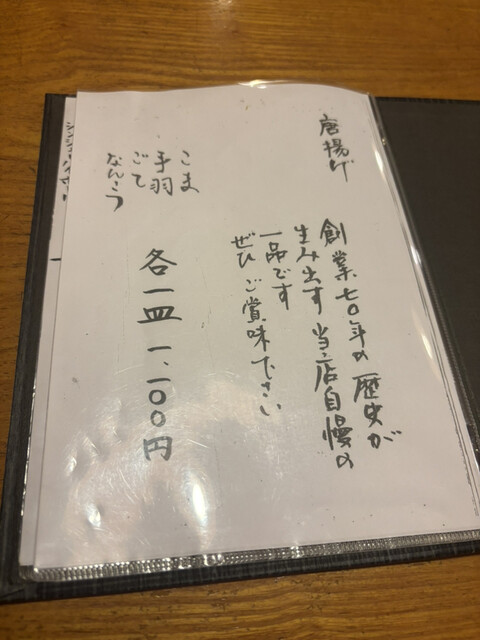 唐揚げ
創業七〇年の歴史が
生み出す当店自慢の
一品です
ぜひご賞味下さい
こま
手羽
ごて
なんこう
各一皿 一、一〇〇円